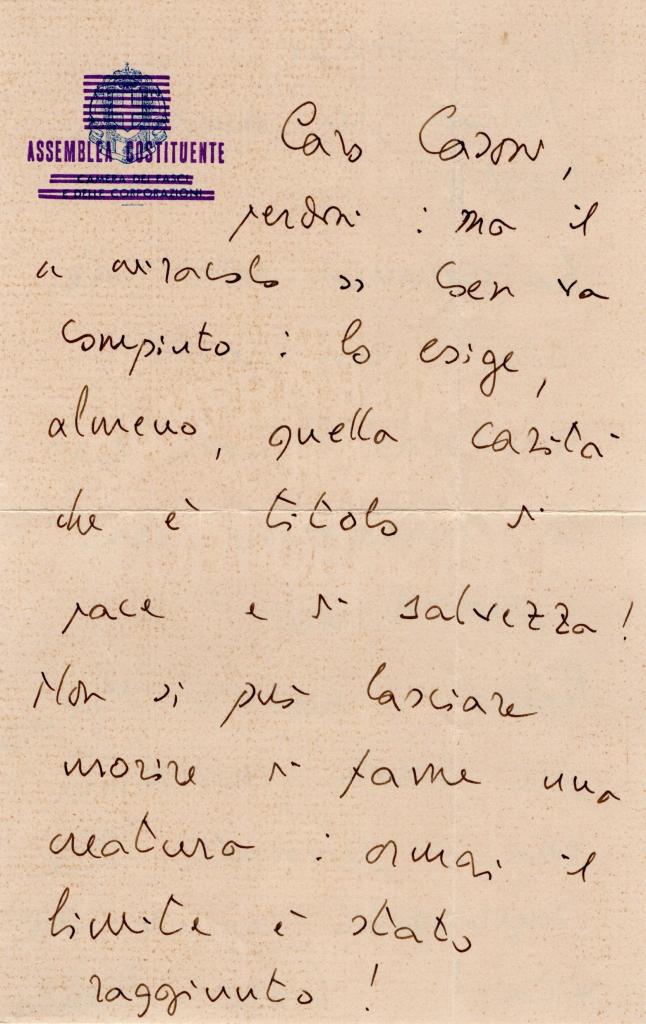 ASSEMBLEA COSTITUENTE
CAMERA DEI FASCI
E DELLE CORPORAZIONI
Caro
perdoni : ma il
« miracolo » ben va
compiuto : lo esige,
almeno, quella carità
che è titolo di
pace e di salvezza !
Non si può lasciare
morire di fame una
creatura : ormai il
limite è stato
raggiunto !